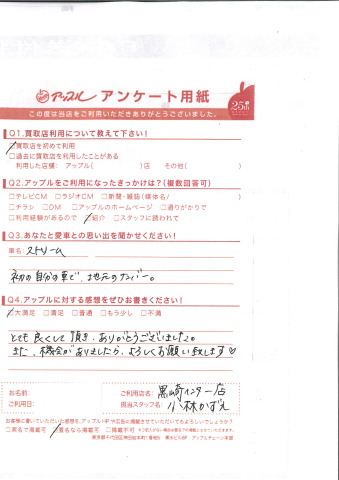 アップル アンケート用紙
この度は当店をご利用いただきありがとうございました。
Q1.買取店利用について教えて下さい!
☑買取店を初めて利用
□過去に買取店を利用したことがある
利用した店舗: アップル( )店 その他( )
Q2.アップルをご利用になったきっかけは?(複数回答可)
□テレビCM □ラジオCM □新聞・雑誌(媒体名/ )
□チラシ □DM □アップルのホームページ □通りがかりで
□利用経験があるので ☑紹介 □スタッフに誘われて
Q3.あなたと愛車との思い出を聞かせください!
車名: ストリーム
初の自分の車で、地元のナンバー。
Q4.アップルに対する感想をぜひお書きください!
☑大満足 □満足 □普通 □もう少し □不満
とても良くして頂き、ありがとうございました。
また、機会がありましたら、よろしくお願い致します♡
お名前: ご利用店名: 黒崎インター店
ご利用日: 担当スタッフ名: 小林かずえ
お客様に書いていただいた感想を、アップルHPや広告に掲載させていただいてもよろしいでしょうか?
□実名で掲載可 ☑匿名なら掲載可 □掲載不可